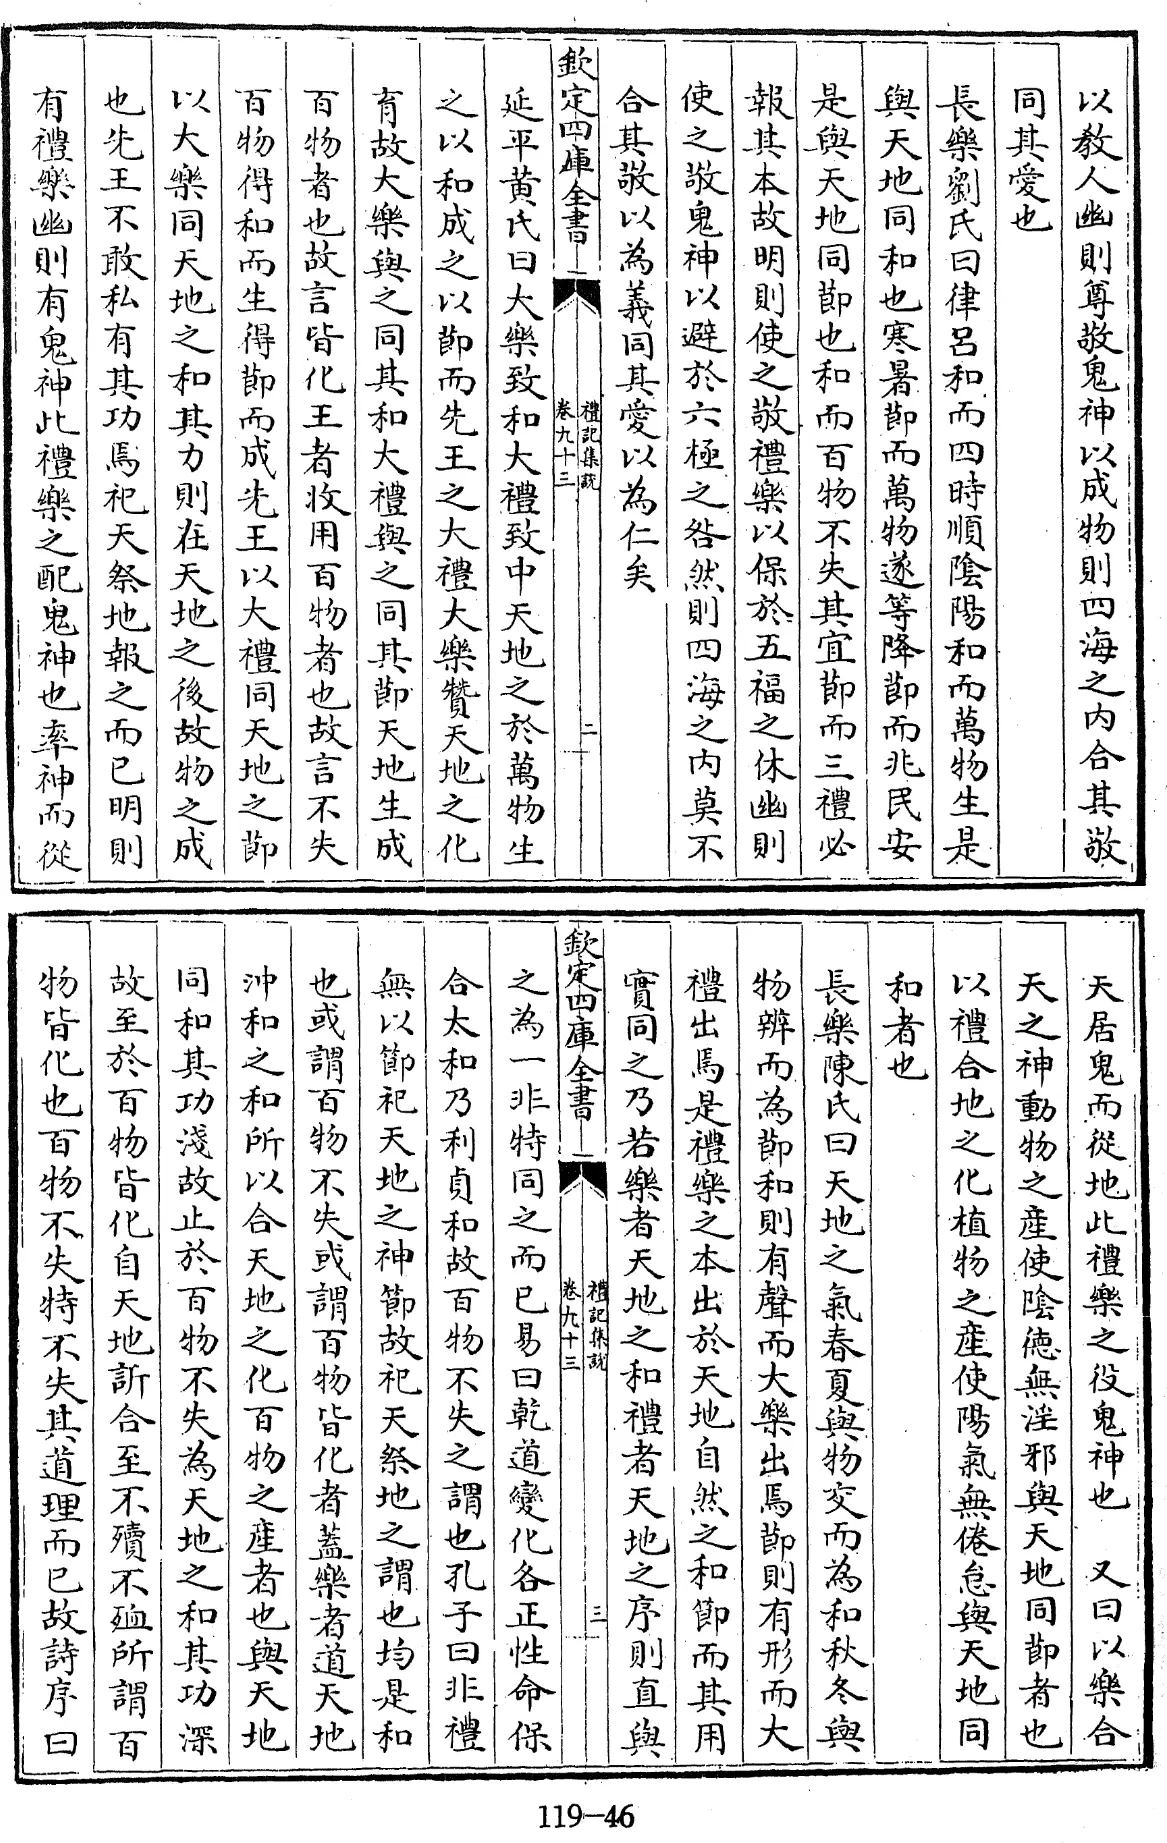 以教人幽則尊敬鬼神以成物則四海之内合其敬
同其愛也
長樂劉氏曰律呂和而四時順陰陽和而萬物生是
與天地同和也寒暑節而萬物遂等降節而兆民安
是與天地同節也和而百物不失其宜節而三禮必
報其本故明則使之敬禮樂以保於五福之休幽則
使之敬鬼神以避於六極之咎然則四海之内莫不
合其敬以為義同其愛以為仁矣
欽定四庫全書
禮記集説
卷九十三
二
延平黄氏曰大樂致和大禮致中天地之於萬物生
之以和成之以節而先王之大禮大樂贊天地之化
育故大樂與之同其和大禮與之同其節天地生成
百物者也故言皆化王者收用百物者也故言不失
百物得和而生得節而成先王以大禮同天地之節
以大樂同天地之和其力則在天地之後故物之成
也先王不敢私有其功焉祀天祭地報之而已明則
有禮樂幽則有鬼神此禮樂之配鬼神也率神而從
天居鬼而從地此禮樂之役鬼神也 又曰以樂合
天之神動物之産使陰德無淫邪與天地同節者也
以禮合地之化植物之産使陽氣無倦怠與天地同
和者也
長樂陳氏曰天地之氣春夏與物交而為和秋冬與
物辨而為節和則有聲而大樂出焉節則有形而大
禮出焉是禮樂之本出於天地自然之和節而其用
實同之乃若樂者天地之和禮者天地之序則直與
欽定四庫全書
禮記集説
卷九十三
三
之為一非特同之而已易曰乾道變化各正性命保
合太和乃利貞和故百物不失之謂也孔子曰非禮
無以節祀天地之神節故祀天祭地之謂也均是和
也或謂百物不失或謂百物皆化者蓋樂者道天地
沖和之和所以合天地之化百物之産者也與天地
同和其功淺故止於百物不失為天地之和其功深
故至於百物皆化自天地訢合至不殰不殈所謂百
物皆化也百物不失特不失其道理而已故詩序曰
119-46